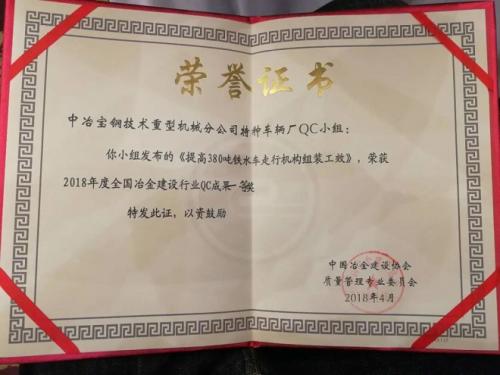 荣誉证书
中冶宝钢技术重型机械分公司特种车辆厂QC小组：
你小组发布的《提高380吨铁水车走行机构组装工效》，荣获
2018年度全国冶金建设行业QC成果一等奖
特发此证，以资鼓励
中国冶金建设协会
质量管理专业委员会
2018年4月